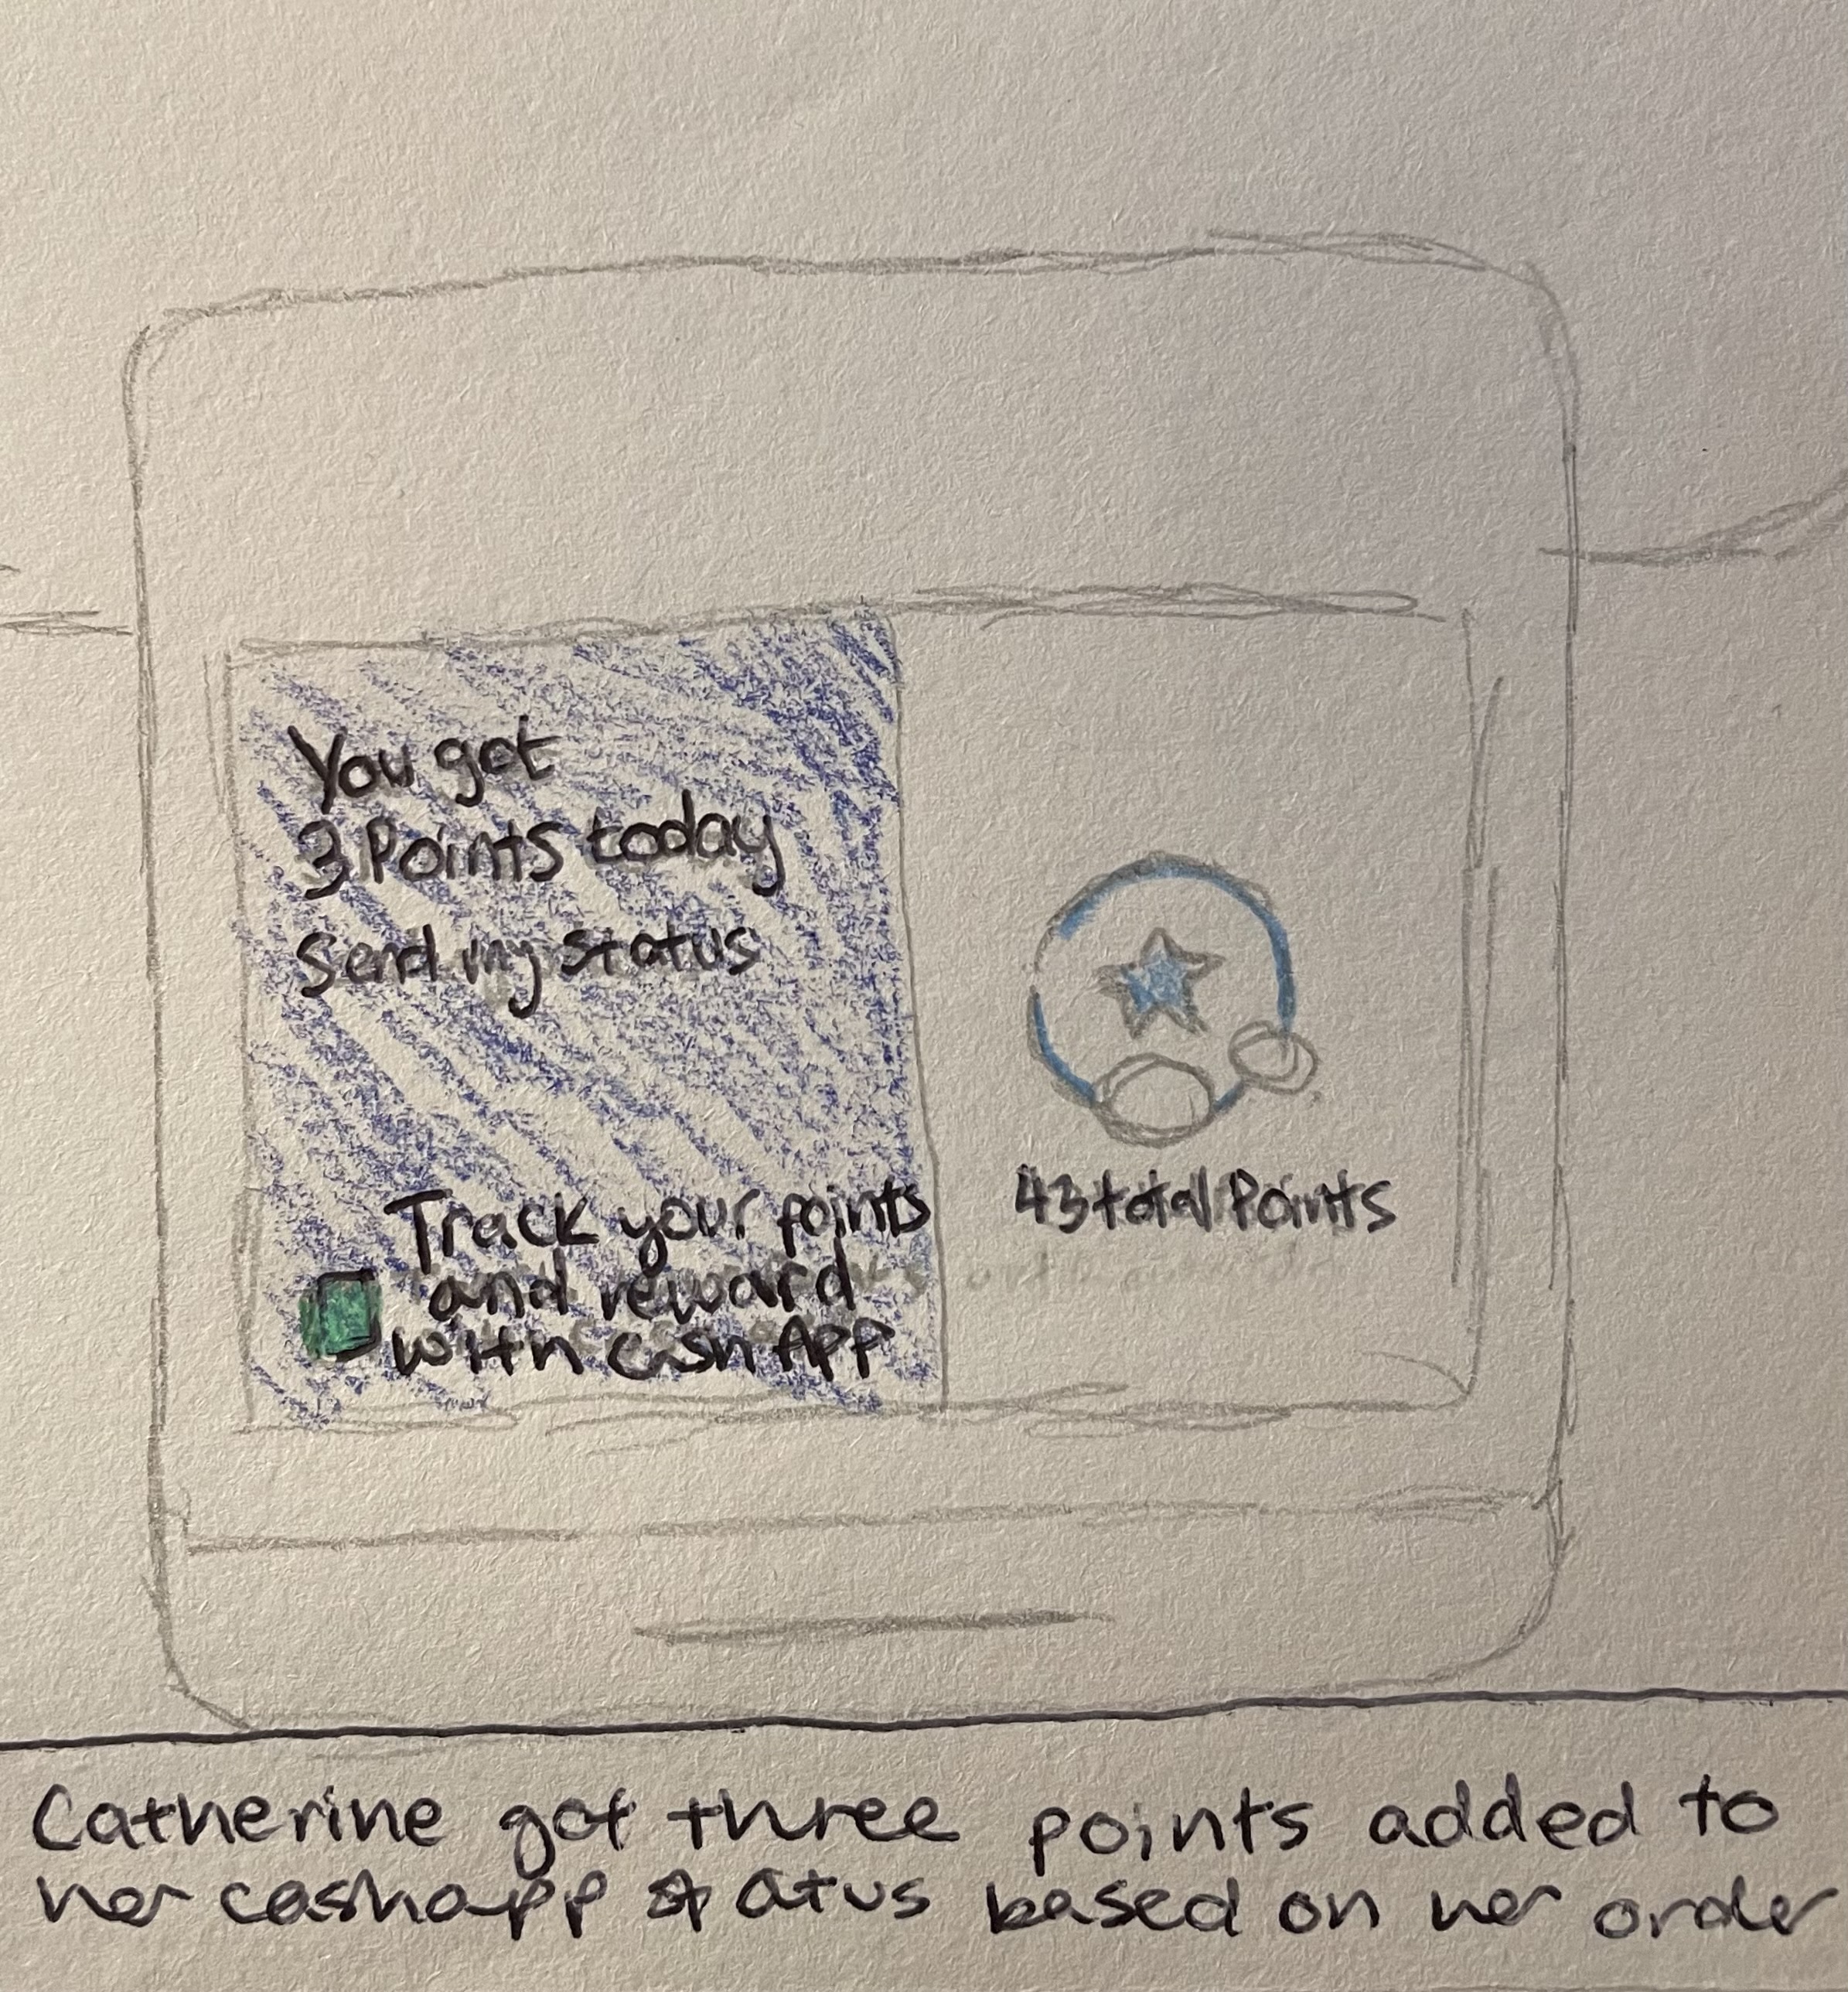 You got
3 Points today
Send my status
Track your points
and reward
with Cash App
43 total Points
Catherine got three points added to
her cashapp status based on her order